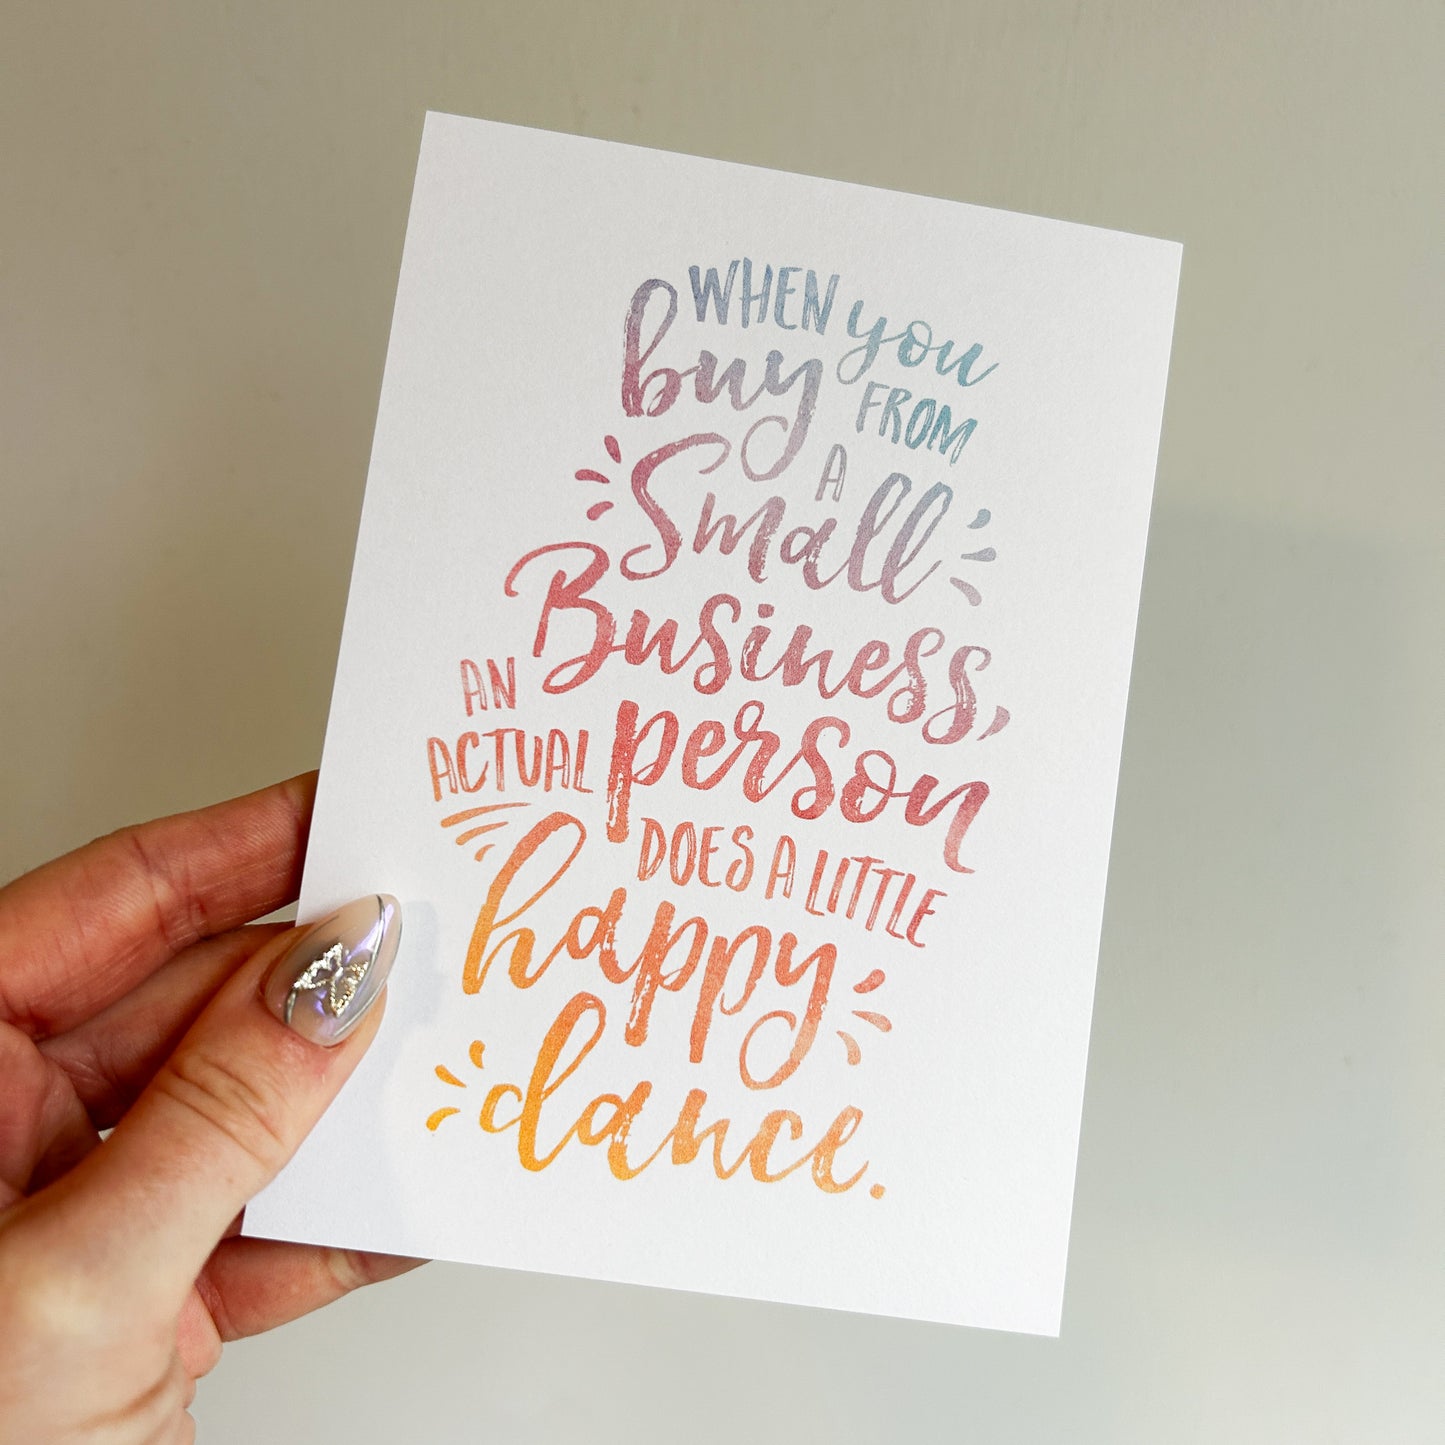 WHEN you
buy FROM
A
Small
Business,
AN
ACTUAL person
DOES A LITTLE
happy
dance.